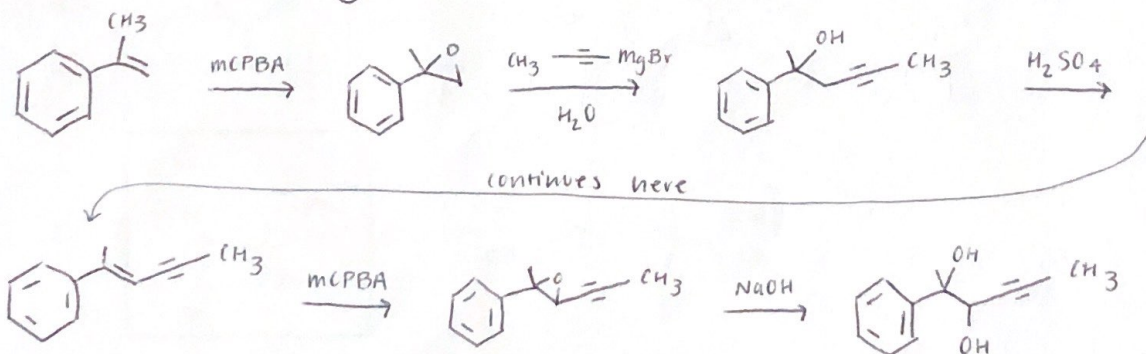 CH3
mCPBA
O
CH3 MgBr
H2O
OH
CH3
H2SO4
continues here
CH3
mCPBA
O
CH3
NaOH
OH
CH3
OH